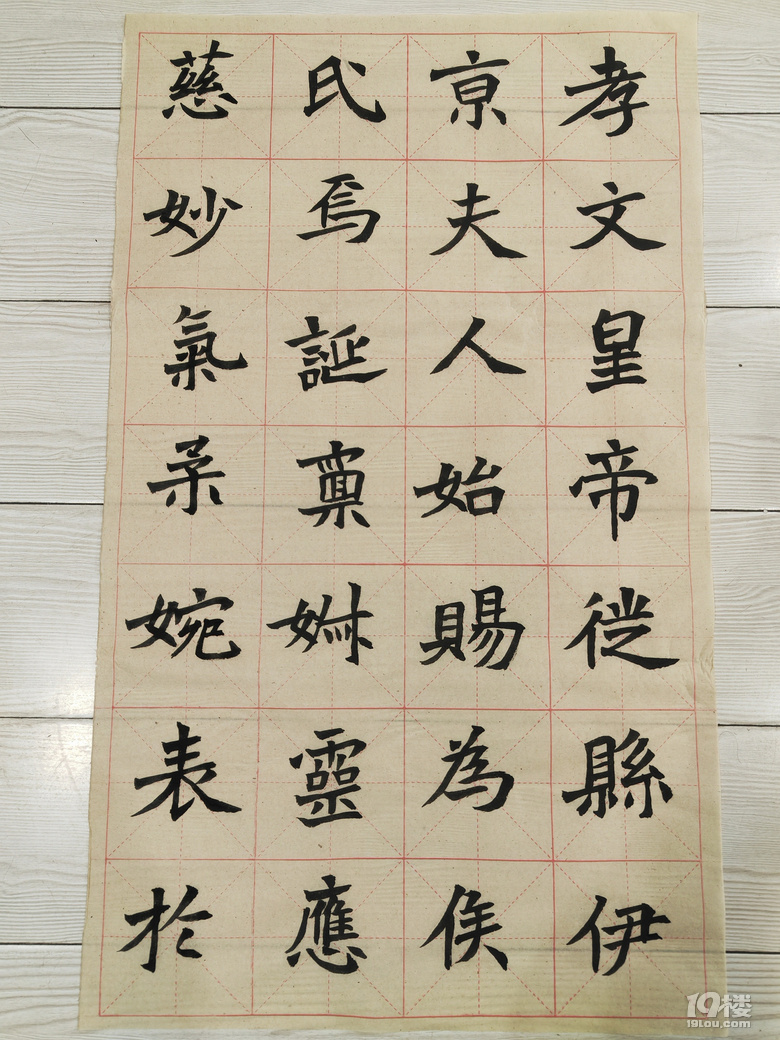 孝文皇帝徙縣伊
亰夫人始賜為侯
氏焉誕稟靈應
慈妙氣柔婉表於
19楼
19lou.com